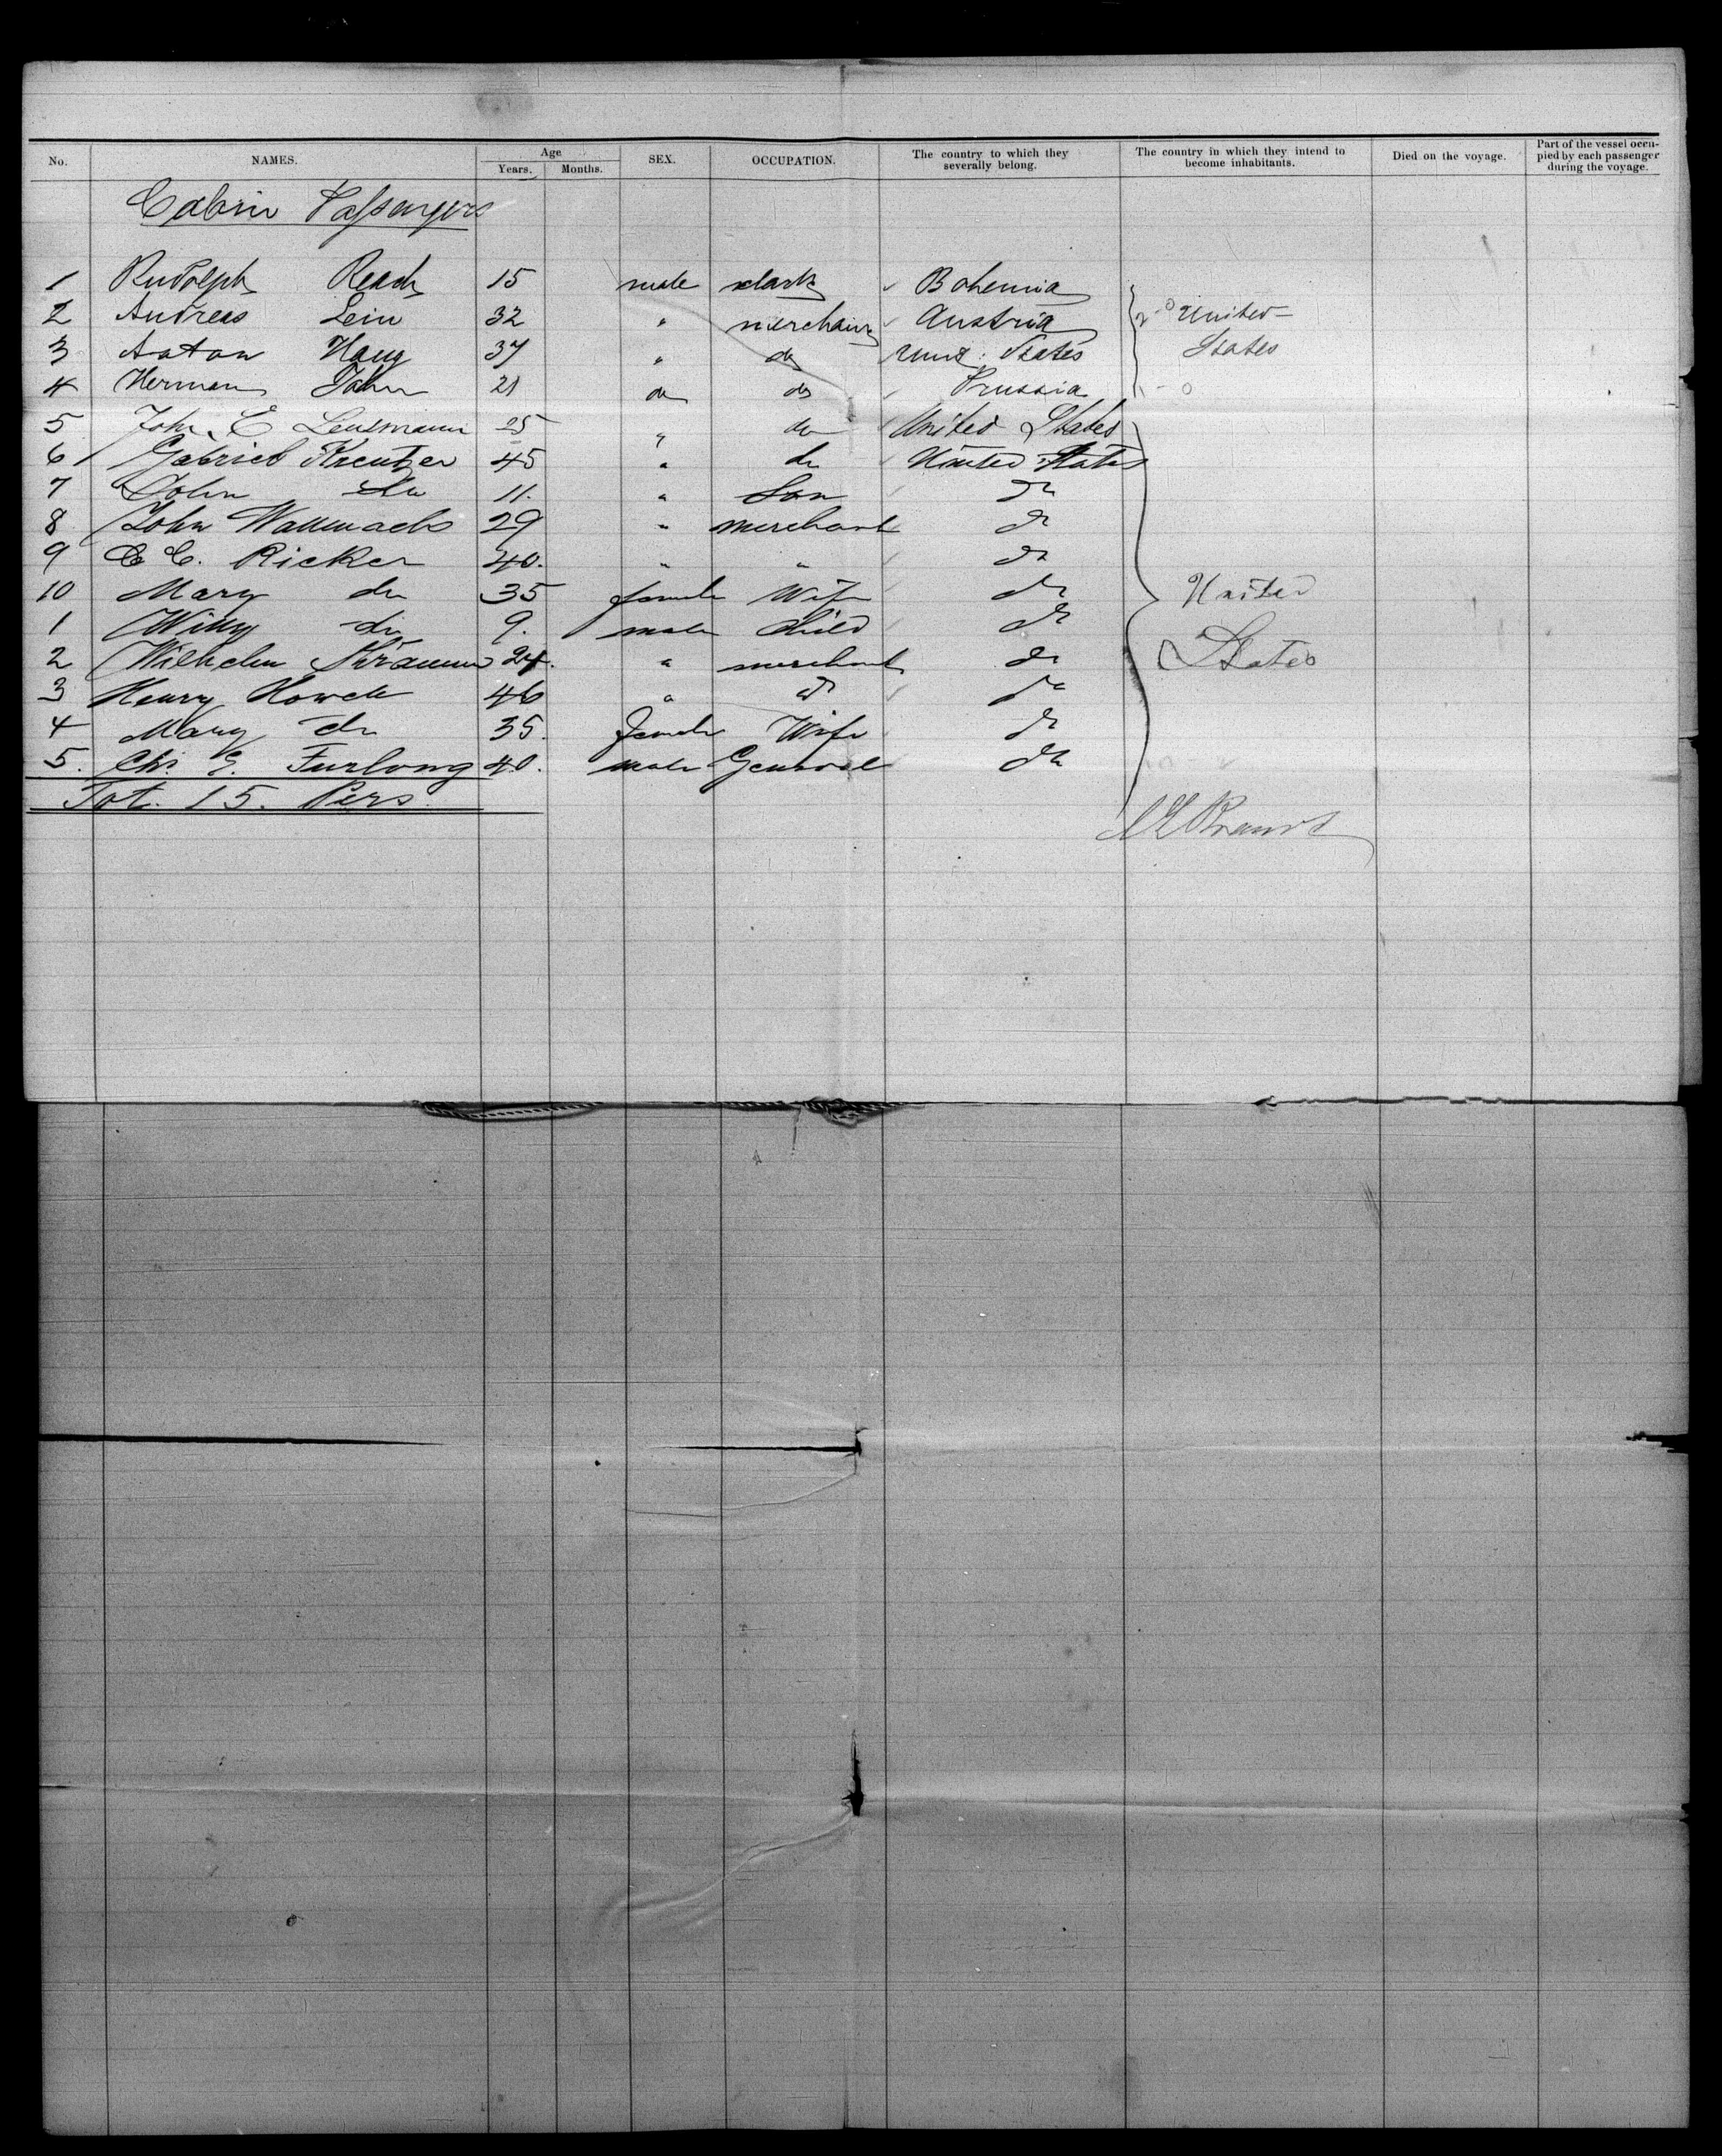 No. NAMES. Age Years. Months. SEX. OCCUPATION. The country to which they severally belong. The country in which they intend to become inhabitants. Died on the voyage. Part of the vessel occupied by each passenger during the voyage.
Cabin Passengers
1 Rudolph Reach 15 male clark Bohemia
2 Andreas Lein 32 " merchant Austria United
3 Anton Haug 37 " do Unit: States States
4 Herman Jahn 21 do do Prussia
5 John E 25 " do United States
6 Gabriel Kreutzer 45 " do United States
7 John do 11. " Son do
8 John 29 " merchant do
9 C. Ricker 40. " " do
10 Mary do 35 female Wife do United
1 Willy do 9. male child do
2 Wilhelm 24. " merchant do States
3 Henry Howde 46 " do do
4 Mary do 35. female Wife do
5. Ch. E. Furlong 40. male General do
Tot. 15. Pers.